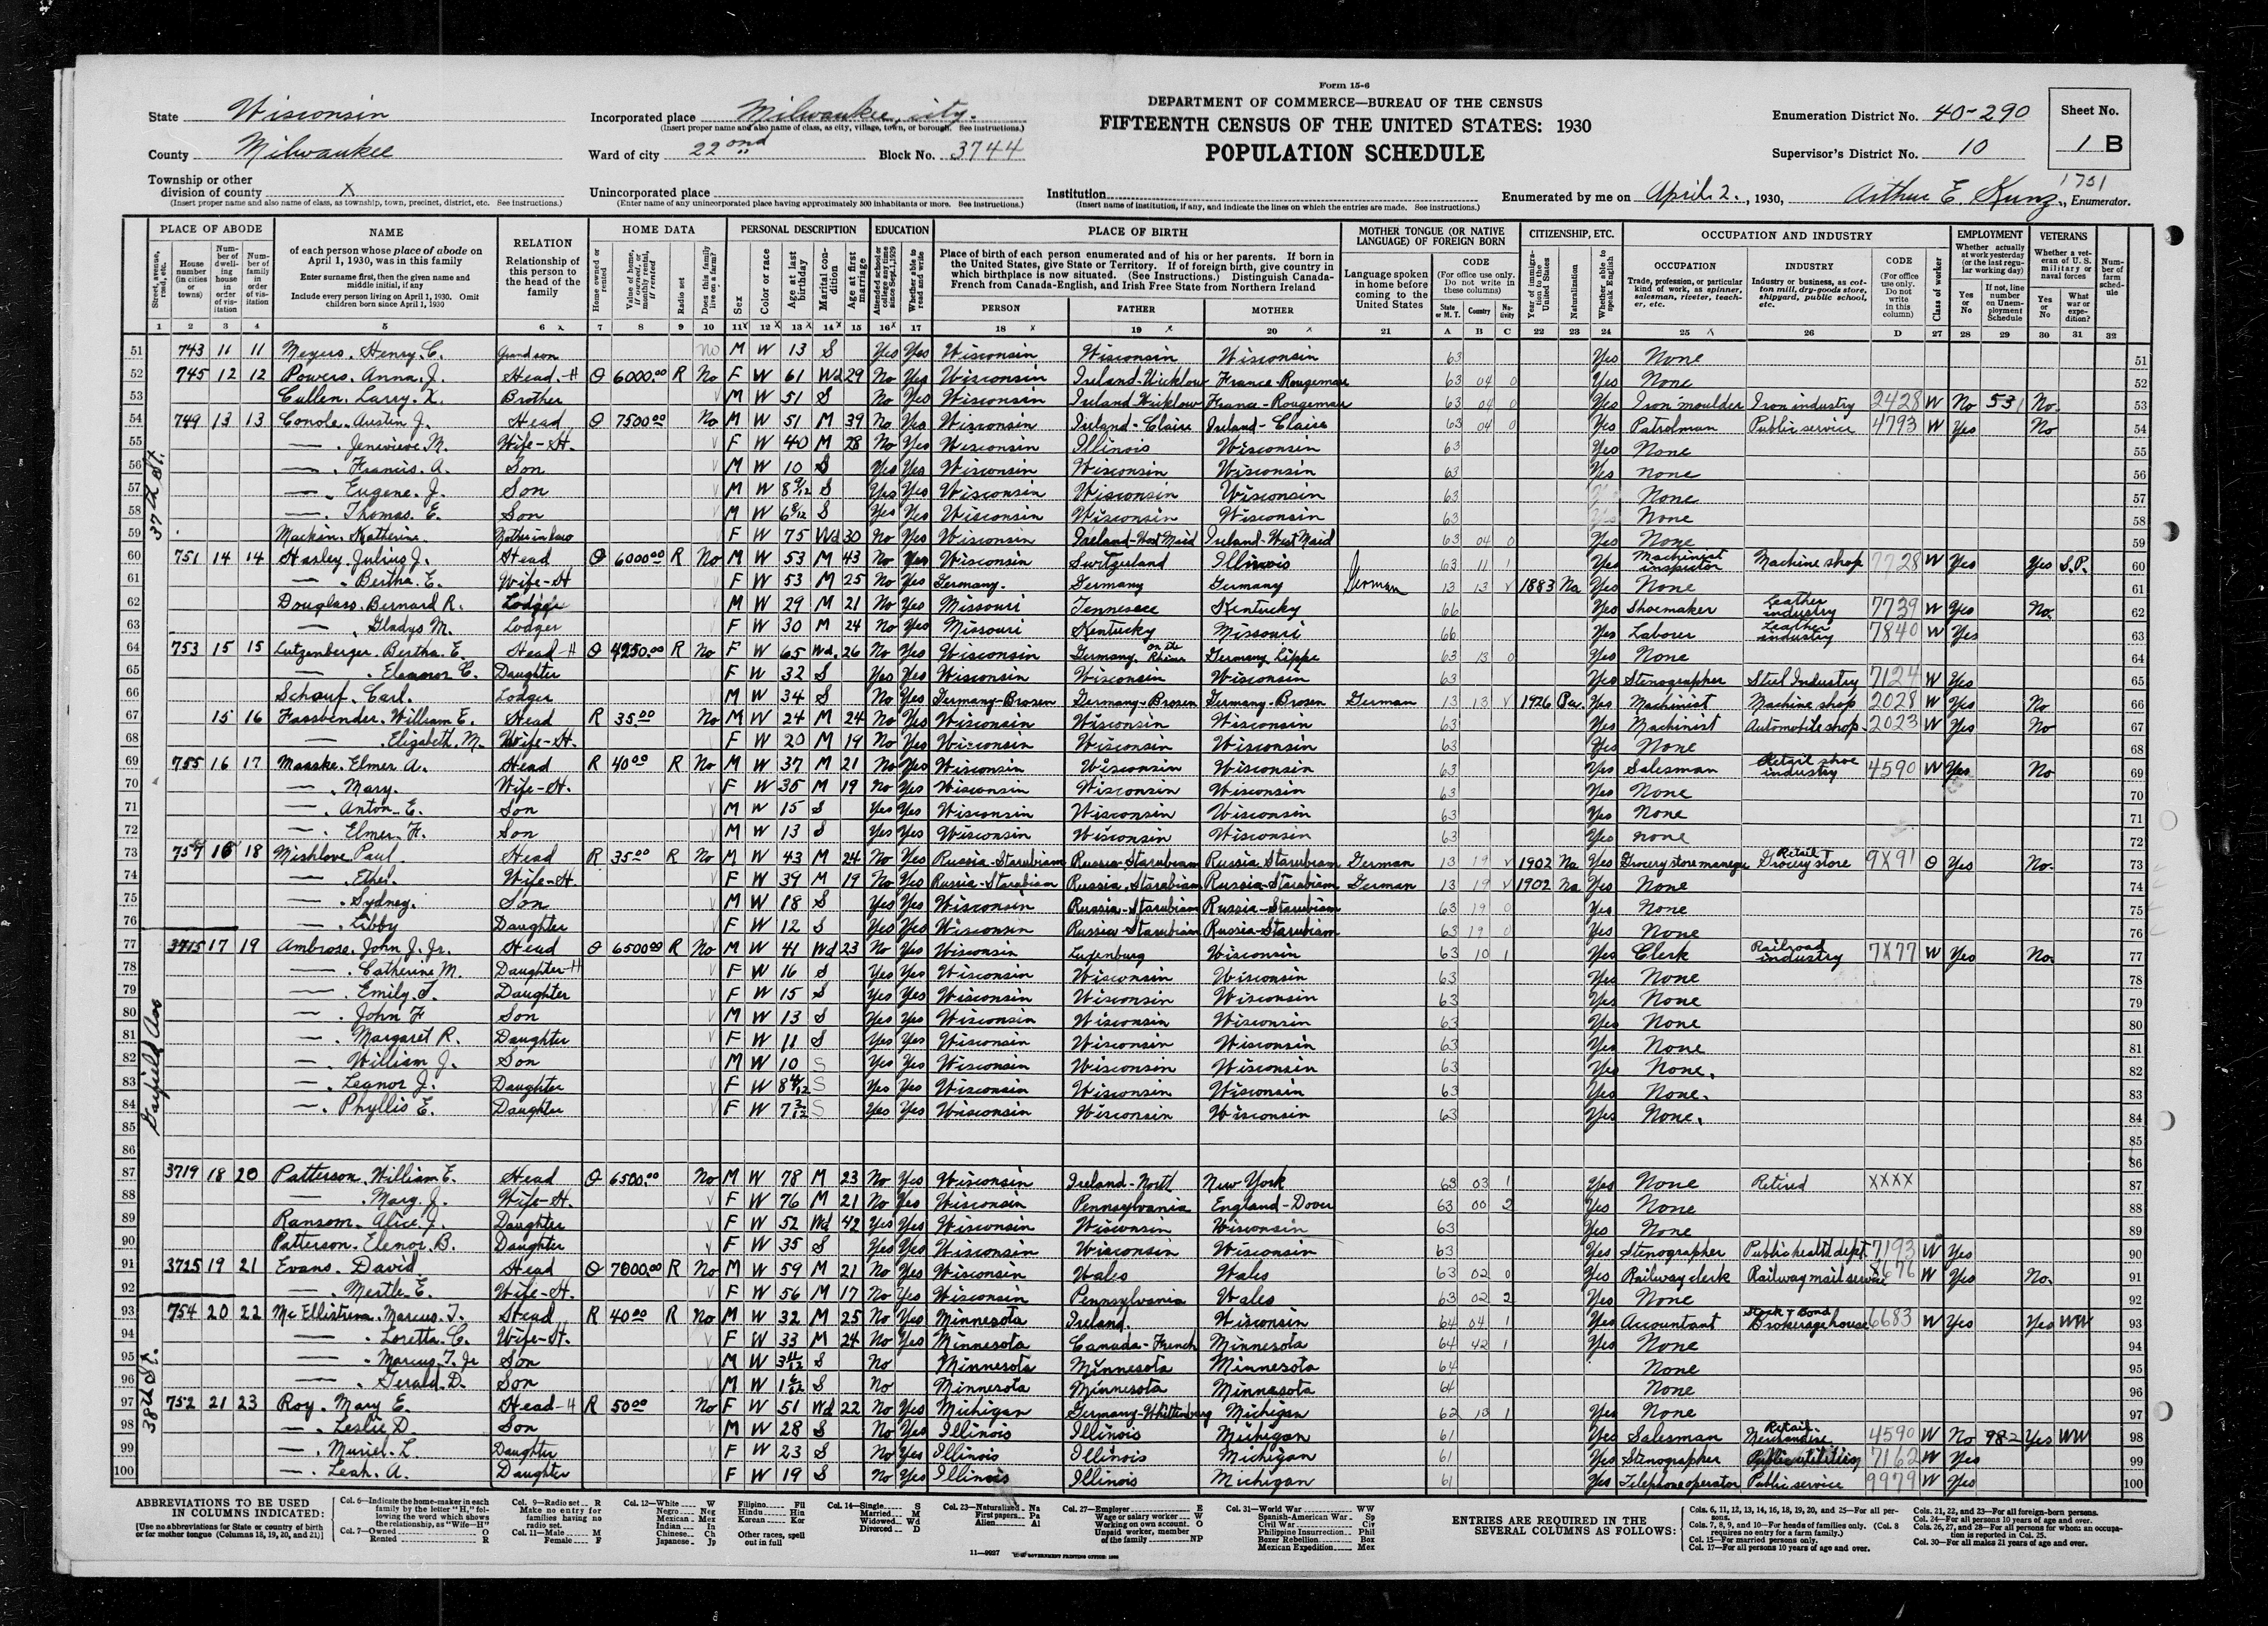 Form 15-6
DEPARTMENT OF COMMERCE—BUREAU OF THE CENSUS
FIFTEENTH CENSUS OF THE UNITED STATES: 1930
POPULATION SCHEDULE
State Wisconsin
County Milwaukee
Township or other division of county X
(Insert proper name and also name of class, as township, town, precinct, district, etc. See instructions.)
Incorporated place Milwaukee, city.
(Insert proper name and also name of class, as city, village, town, or borough. See instructions.)
Ward of city 22ond Block No. 3744
Unincorporated place
(Enter name of any unincorporated place having approximately 500 inhabitants or more. See instructions.)
Institution
(Insert name of institution, if any, and indicate the lines on which the entries are made. See instructions.)
Enumeration District No. 40-290
Supervisor's District No. 10
Sheet No. 1 B
1751
Enumerated by me on April 2., 1930, Arthur E. Kunz, Enumerator.
PLACE OF ABODE NAME RELATION HOME DATA PERSONAL DESCRIPTION EDUCATION PLACE OF BIRTH MOTHER TONGUE (OR NATIVE LANGUAGE) OF FOREIGN BORN CITIZENSHIP, ETC. OCCUPATION AND INDUSTRY EMPLOYMENT VETERANS
37th St.
51 743 11 11 Meyers. Henry. C. Grandson No M W 13 S Yes Yes Wisconsin Wisconsin Wisconsin 63 Yes None 51
52 745 12 12 Powers. Anna. J. Head-H O 6000.00 R No F W 61 Wd 29 No Yes Wisconsin Ireland-Wicklow France-Rougemar 63 04 0 Yes None 52
53 Cullen. Larry. L. Brother M W 51 S No Yes Wisconsin Ireland Wicklow France-Rougemar 63 04 0 Yes Iron moulder Iron industry 2428 W No 53 No. 53
54 749 13 13 Conole. Austin J. Head O 7500.00 No M W 51 M 39 No Yes Wisconsin Ireland-Claire Ireland-Claire 63 04 0 Yes Patrolman Public service 4793 W Yes No 54
55 — . Jenevieve M. Wife-H. F W 40 M 28 No Yes Wisconsin Illinois Wisconsin 63 Yes None 55
56 — . Francis. A. Son M W 10 S Yes Yes Wisconsin Wisconsin Wisconsin 63 Yes none 56
57 — . Eugene. J. Son M W 8 9/12 S Yes Yes Wisconsin Wisconsin Wisconsin 63 None 57
58 — . Thomas. E. Son M W 6 8/12 S Yes Wisconsin Wisconsin Wisconsin 63 None 58
59 Mackin. Katherine. Mother in law F W 75 Wd 30 No Yes Wisconsin Ireland-West Maid Ireland-West Maid 63 04 0 Yes None 59
60 751 14 14 Hasley. Julius J. Head O 6000.00 R No M W 53 M 43 No Yes Wisconsin Switzerland Illinois 63 11 1 Yes Machinist inspector Machine shop 7728 W Yes Yes S.P. 60
61 — . Bertha. E. Wife-H F W 53 M 25 No Yes Germany. Germany Germany German 13 13 V 1883 Na Yes None 61
62 Douglass. Bernard R. Lodger M W 29 M 21 No Yes Missouri Tennesee Kentucky 66 Yes Shoemaker Leather industry 7739 W Yes No. 62
63 — . Gladys M. Lodger F W 30 M 24 No Yes Missouri Kentucky Missouri 66 Yes Laborer Leather industry 7840 W Yes 63
64 753 15 15 Lutzenberger. Bertha. E. Head-H O 4250.00 R No F W 65 Wd. 26 No Yes Wisconsin Germany. on the Rhine Germany Lippe 63 13 0 Yes None 64
65 — . Eleanor C. Daughter F W 32 S Yes Yes Wisconsin Wisconsin Wisconsin 63 Yes Stenographer Steel Industry 7124 W Yes 65
66 Schauf. Carl. Lodger M W 34 S No Yes Germany-Brosen Germany-Brosen Germany-Brosen German 13 13 V 1926 Pa. Yes Machinist Machine shop 2028 W Yes No 66
67 15 16 Fassbender. William E. Head R 35.00 No M W 24 M 24 No Yes Wisconsin Wisconsin Wisconsin 63 Yes Machinist Automobile shop. 2023 W Yes No 67
68 — . Elizabeth. M. Wife-H. F W 20 M 19 No Yes Wisconsin Wisconsin Wisconsin 63 Yes None 68
69 755 16 17 Maaske. Elmer A. Head R 40.00 R No M W 37 M 21 No Yes Wisconsin Wisconsin Wisconsin 63 Yes Salesman Retail shoe industry 4590 W Yes No 69
70 — . Mary. Wife-H. F W 35 M 19 No Yes Wisconsin Wisconsin Wisconsin 63 Yes None 70
71 — . Anton-E. Son M W 15 S Yes Yes Wisconsin Wisconsin Wisconsin 63 Yes None 71
72 — . Elmer. F. Son M W 13 S Yes Yes Wisconsin Wisconsin Wisconsin 63 Yes none 72
73 757 16 18 Mishlove Paul. Head R 35.00 R No M W 43 M 24 No Yes Russia-Starubiam Russia-Starubiam Russia Starubiam German 13 19 V 1902 Na Yes Grocery store manager Retail Grocery store 9X91 O Yes No. 73
74 — . Ethel. Wife-H. F W 39 M 19 No Yes Russia-Starabiam Russia. Starabiam Russia-Starabiam German 13 19 V 1902 Na Yes None 74
75 — . Sydney. Son M W 18 S Yes Yes Wisconsin Russia-Starubiam Russia-Starubiam 63 19 0 Yes None 75
76 — . Libby Daughter F W 12 S Yes Yes Wisconsin Russia-Starubiam Russia-Starubiam 63 19 0 Yes None 76
Garfield Ave
77 3715 17 19 Ambrose. John J. Jr. Head O 6500.00 R No M W 41 Wd 23 No Yes Wisconsin Luxenburg Wisconsin 63 10 1 Yes Clerk Railroad industry 7X77 W Yes No. 77
78 — . Catherine M. Daughter-H F W 16 S Yes Yes Wisconsin Wisconsin Wisconsin 63 Yes None 78
79 — . Emily. T. Daughter F W 15 S Yes Yes Wisconsin Wisconsin Wisconsin 63 Yes None 79
80 — . John F Son M W 13 S Yes Yes Wisconsin Wisconsin Wisconsin 63 Yes None 80
81 — . Margaret R. Daughter F W 11 S Yes Yes Wisconsin Wisconsin Wisconsin 63 Yes None 81
82 — . William J. Son M W 10 S Yes Yes Wisconsin Wisconsin Wisconsin 63 Yes None. 82
83 — . Leanor J. Daughter F W 8 4/12 S Yes Yes Wisconsin Wisconsin Wisconsin 63 Yes None. 83
84 — . Phyllis E. Daughter F W 7 3/12 S Yes Yes Wisconsin Wisconsin Wisconsin 63 Yes None. 84
85 85
86 86
87 3719 18 20 Patterson. William E. Head O 6500.00 No M W 78 M 23 No Yes Wisconsin Ireland-North New York 63 03 1 Yes None Retired XXXX 87
88 — . Mary J. Wife-H. F W 76 M 21 No Yes Wisconsin Pennsylvania England-Dover 63 00 2 Yes None 88
89 Ransom. Alice. J. Daughter F W 52 Wd 42 Yes Yes Wisconsin Wisconsin Wisconsin 63 Yes None 89
90 Patterson. Elenor. B. Daughter F W 35 S Yes Yes Wisconsin Wisconsin Wisconsin 63 Yes Stenographer Public health dept. 7193 W Yes 90
91 3725 19 21 Evans. David. Head O 7000.00 R No M W 59 M 21 No Yes Wisconsin Wales Wales 63 02 0 Yes Railway clerk Railway mail service W Yes No. 91
92 — . Mertle. E. Wife-H. F W 56 M 17 No Yes Wisconsin Pennsylvania Wales 63 02 2 Yes None 92
38th St.
93 754 20 22 McEllistrem. Marcus. T. Head R 40.00 R No M W 32 M 25 No Yes Minnesota Ireland. Wisconsin 64 04 1 Yes Accountant Stock & Bond Brokerage house 6683 W Yes Yes WW 93
94 — . Loretta. C. Wife-H. F W 33 M 24 No Yes Minnesota Canada-French Minnesota 64 42 1 Yes None 94
95 — . Marcus. T. Jr Son M W 3 11/12 S No Minnesota Minnesota Minnesota 64 None 95
96 — . Gerald. D. Son M W 1 6/12 S No Minnesota Minnesota Minnesota 64 None 96
97 752 21 23 Roy. Mary E. Head-H R 50.00 No F W 51 Wd 22 No Yes Michigan Germany-Whittenburg Michigan 62 13 1 Yes None 97
98 — . Leslie D. Son M W 28 S No Yes Illinois Illinois Michigan 61 Yes Salesman Retail Merchandise 4590 W No 982 Yes WW 98
99 — . Muriel. L. Daughter F W 23 S No Yes Illinois Illinois Michigan 61 Yes Stenographer Public utilities 7162 W Yes 99
100 — . Leah. A. Daughter F W 19 S No Yes Illinois Illinois Michigan 61 Yes Telephone operator Public service 9979 W Yes 100
ABBREVIATIONS TO BE USED IN COLUMNS INDICATED:
[Use no abbreviations for State or country of birth or for mother tongue (Columns 18, 19, 20, and 21)]
Col. 6—Indicate the home-maker in each family by the letter "H," following the word which shows the relationship, as "Wife—H"
Col. 7—Owned O Rented R
Col. 9—Radio set R Make no entry for families having no radio set.
Col. 11—Male M Female F
Col. 12—White W Negro Neg Mexican Mex Indian In Chinese Ch Japanese Jp Filipino Fil Hindu Hin Korean Kor Other races, spell out in full
Col. 14—Single S Married M Widowed Wd Divorced D
Col. 23—Naturalized Na First papers Pa Alien Al
Col. 27—Employer E Wage or salary worker W Working on own account O Unpaid worker, member of the family NP
Col. 31—World War WW Spanish-American War Sp Civil War Civ Philippine Insurrection Phil Boxer Rebellion Box Mexican Expedition Mex
ENTRIES ARE REQUIRED IN THE SEVERAL COLUMNS AS FOLLOWS:
Cols. 6, 11, 12, 13, 14, 16, 18, 19, 20, and 25—For all persons.
Cols. 7, 8, 9, and 10—For heads of families only. (Col. 8 requires no entry for a farm family.)
Col. 15—For married persons only.
Col. 17—For all persons 10 years of age and over.
Cols. 21, 22, and 23—For all foreign-born persons.
Col. 24—For all persons 10 years of age and over.
Cols. 26, 27, and 28—For all persons for whom an occupation is reported in Col. 25.
Col. 30—For all males 21 years of age and over.
11—9927 U.S. GOVERNMENT PRINTING OFFICE: 1930